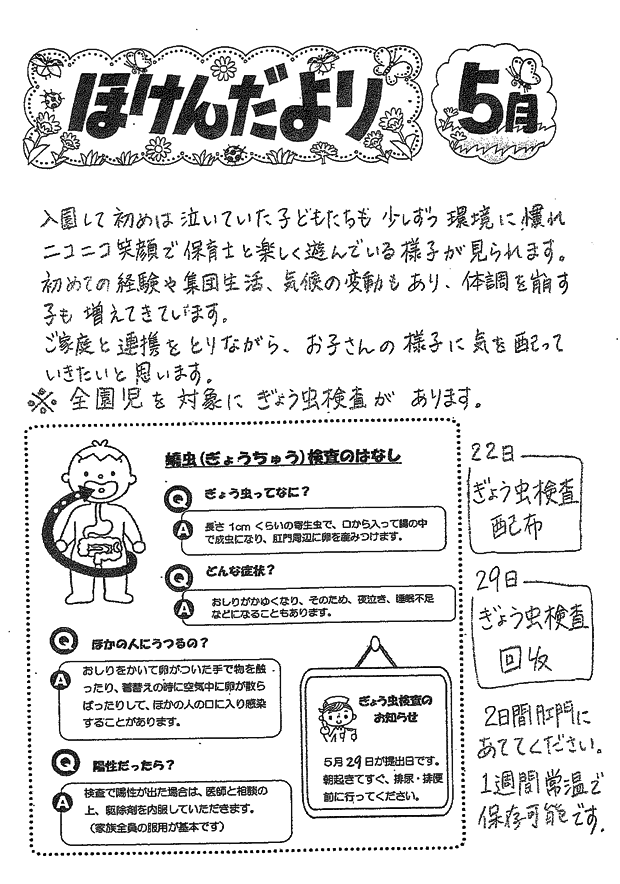 ほけんだより
5月
入園して初めは泣いていた子どもたちも少しずつ環境に慣れ
ニコニコ笑顔で保育士と楽しく遊んでいる様子が見られます。
初めての経験や集団生活、気候の変動もあり、体調を崩す
子も増えてきています。
ご家庭と連携をとりながら、お子さんの様子に気を配って
いきたいと思います。
※全園児を対象にぎょう虫検査があります。
蟯虫(ぎょうちゅう)検査のはなし
Q ぎょう虫ってなに?
A 長さ1cmくらいの寄生虫で、口から入って腸の中
で成虫になり、肛門周辺に卵を産みつけます。
Q どんな症状?
A おしりがかゆくなり、そのため、夜泣き、睡眠不足
などになることもあります。
Q ほかの人にうつるの?
A おしりをかいて卵がついた手で物を触
ったり、着替えの時に空気中に卵が散ら
ばったりして、ほかの人の口に入り感染
することがあります。
Q 陽性だったら?
A 検査で陽性が出た場合は、医師と相談の
上、駆除剤を内服していただきます。
(家族全員の服用が基本です)
ぎょう虫検査の
お知らせ
5月29日が提出日です。
朝起きてすぐ、排尿・排便
前に行ってください。
22日
ぎょう虫検査
配布
29日
ぎょう虫検査
回収
2日間肛門に
あててください。
1週間常温で
保存可能です。